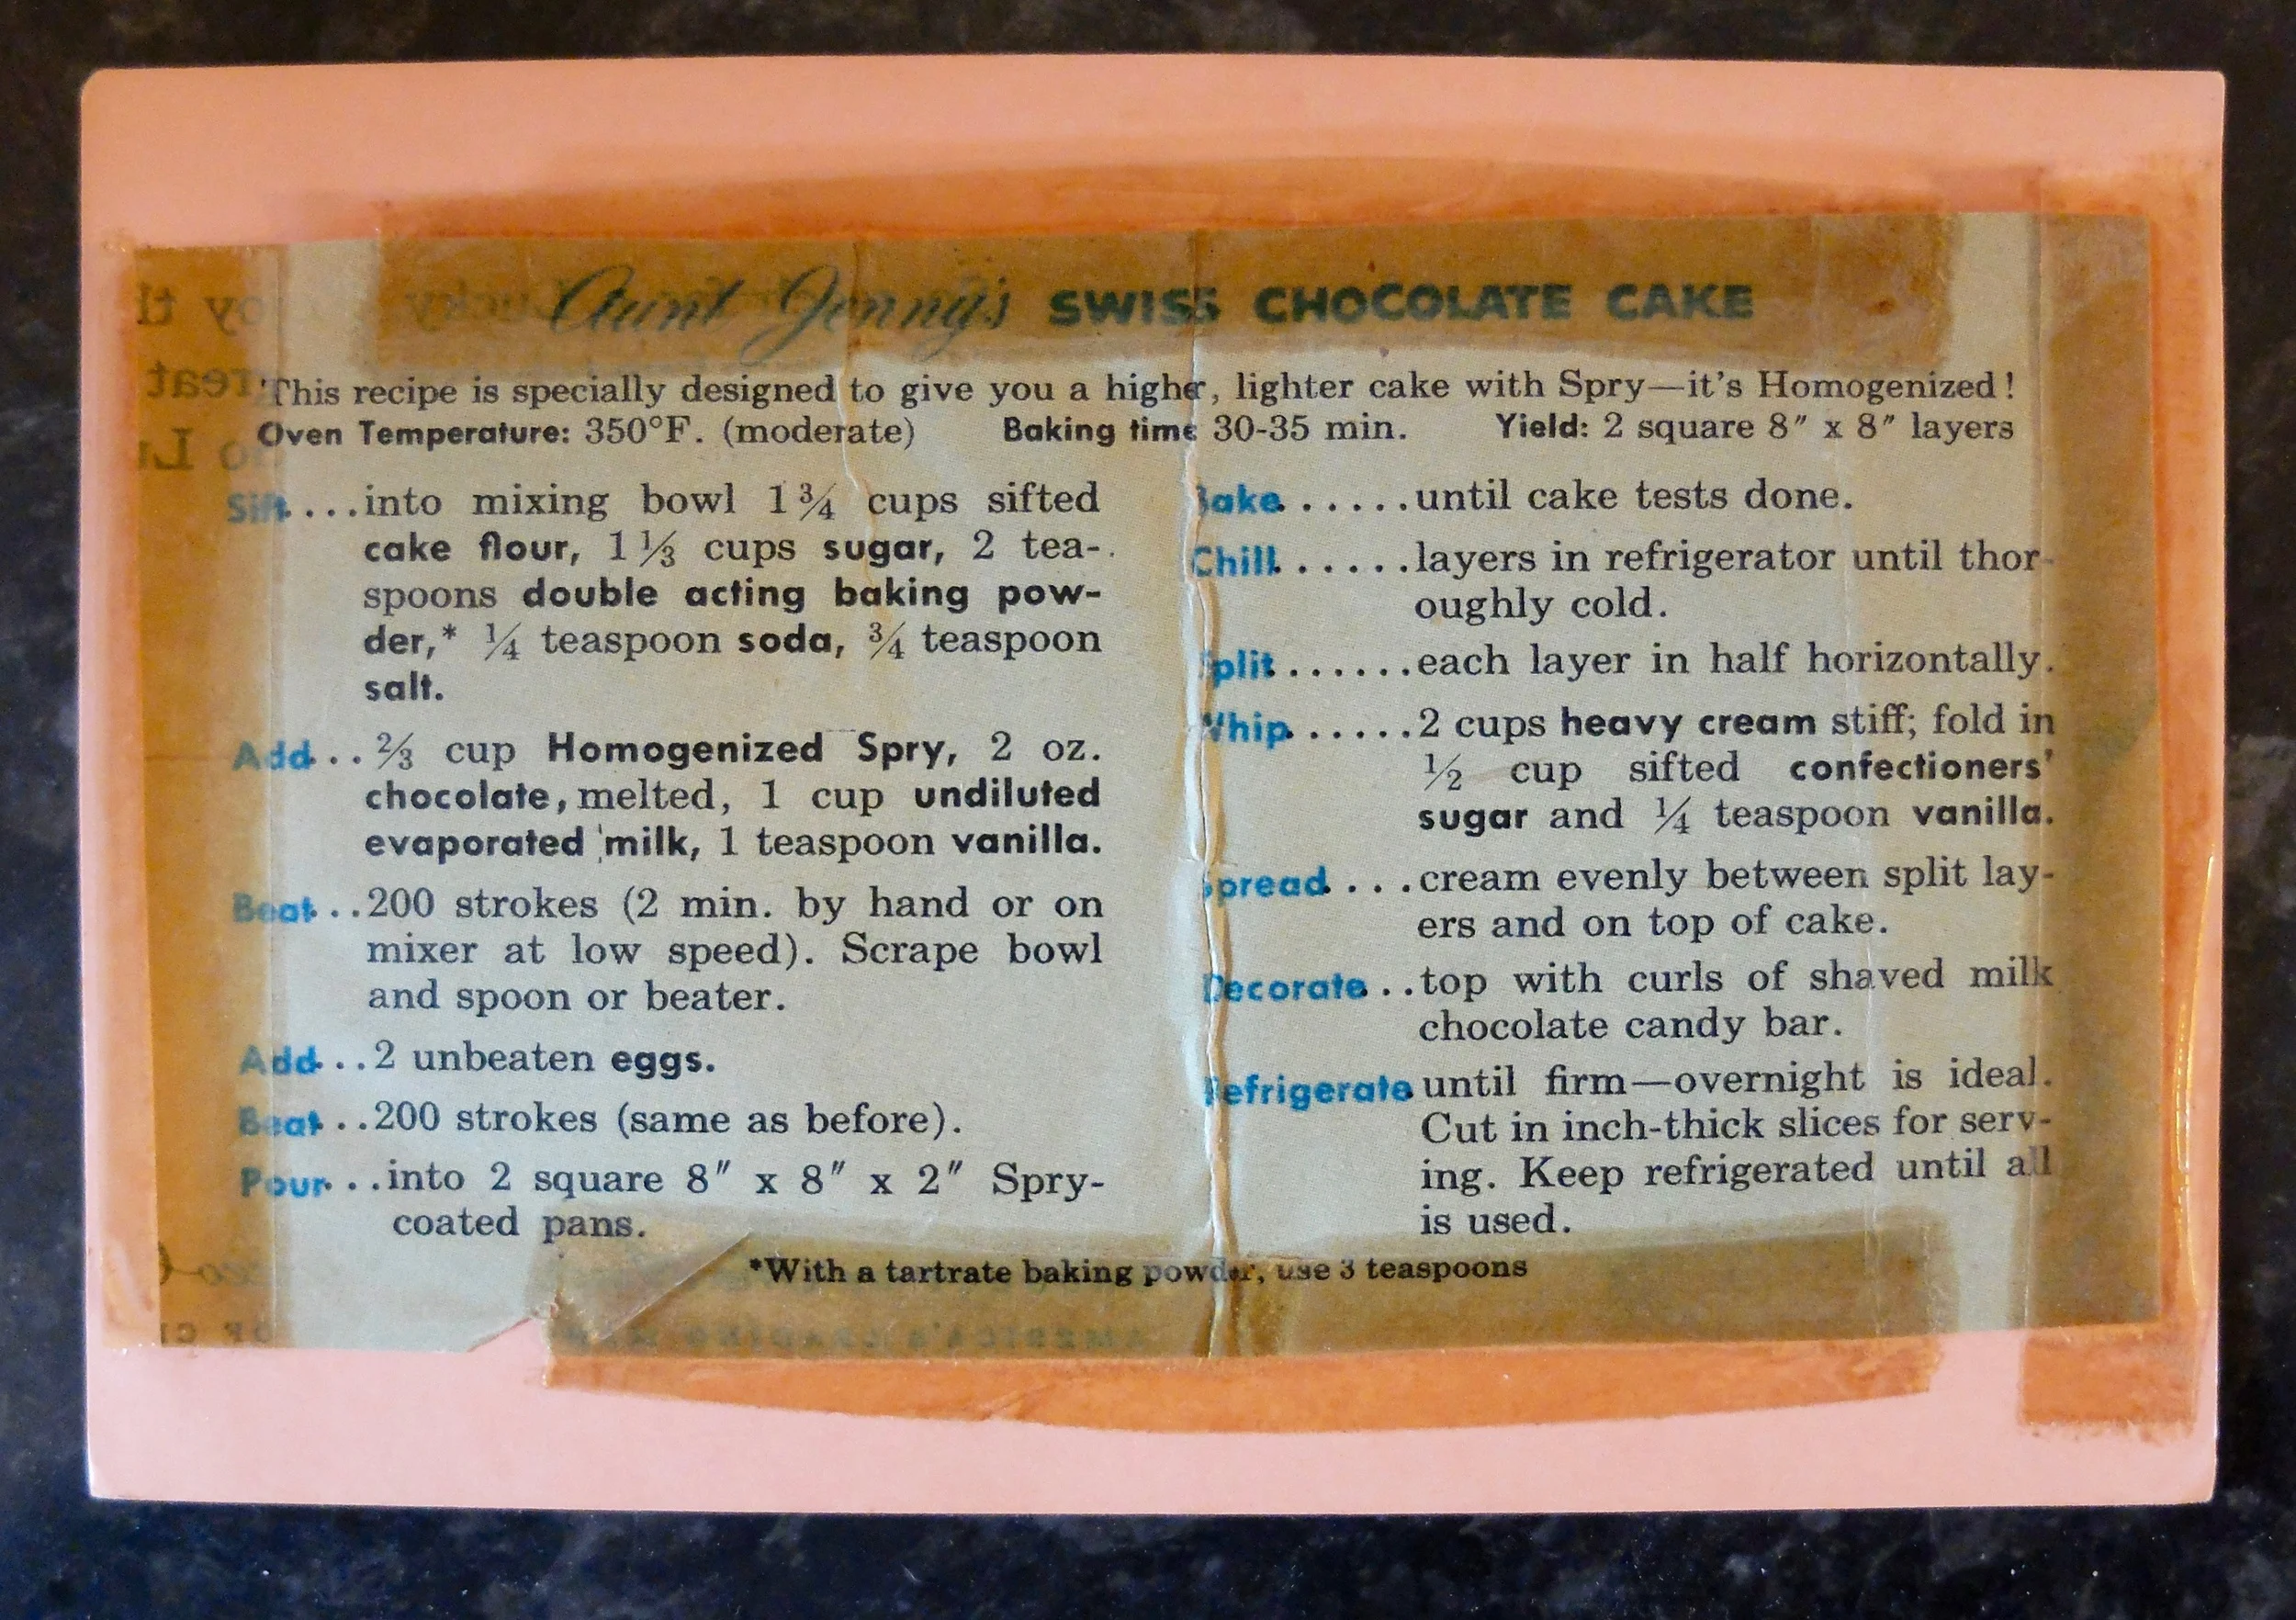 Aunt Jenny's SWISS CHOCOLATE CAKE
This recipe is specially designed to give you a higher, lighter cake with Spry—it's Homogenized!
Oven Temperature: 350°F. (moderate) Baking time 30-35 min. Yield: 2 square 8″ x 8″ layers
Sift....into mixing bowl 1¾ cups sifted
cake flour, 1⅓ cups sugar, 2 tea-
spoons double acting baking pow-
der,* ¼ teaspoon soda, ¾ teaspoon
salt.
Add...⅔ cup Homogenized Spry, 2 oz.
chocolate, melted, 1 cup undiluted
evaporated milk, 1 teaspoon vanilla.
Beat...200 strokes (2 min. by hand or on
mixer at low speed). Scrape bowl
and spoon or beater.
Add...2 unbeaten eggs.
Beat...200 strokes (same as before).
Pour...into 2 square 8″ x 8″ x 2″ Spry-
coated pans.
Bake......until cake tests done.
Chill......layers in refrigerator until thor-
oughly cold.
Split......each layer in half horizontally.
Whip......2 cups heavy cream stiff; fold in
½ cup sifted confectioners'
sugar and ¼ teaspoon vanilla.
Spread....cream evenly between split lay-
ers and on top of cake.
Decorate...top with curls of shaved milk
chocolate candy bar.
Refrigerate until firm—overnight is ideal.
Cut in inch-thick slices for serv-
ing. Keep refrigerated until all
is used.
*With a tartrate baking powder, use 3 teaspoons